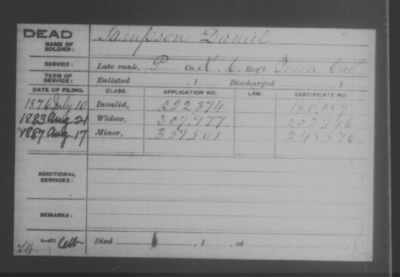 DEAD
NAME OF SOLDIER: Sampson Daniel
SERVICE: Late rank, P Co. K, 6, Reg't Tenn Cav
TERM OF SERVICE: Enlisted , 1 Discharged , 1
DATE OF FILING. CLASS. APPLICATION NO. LAW. CERTIFICATE NO.
1876 July 10 Invalid, 222,374
1883 Aug. 21 Widow, 307,977.
1887 Aug. 17 Minor, 359,501
ADDITIONAL SERVICES:
REMARKS:
Died , 1 , at